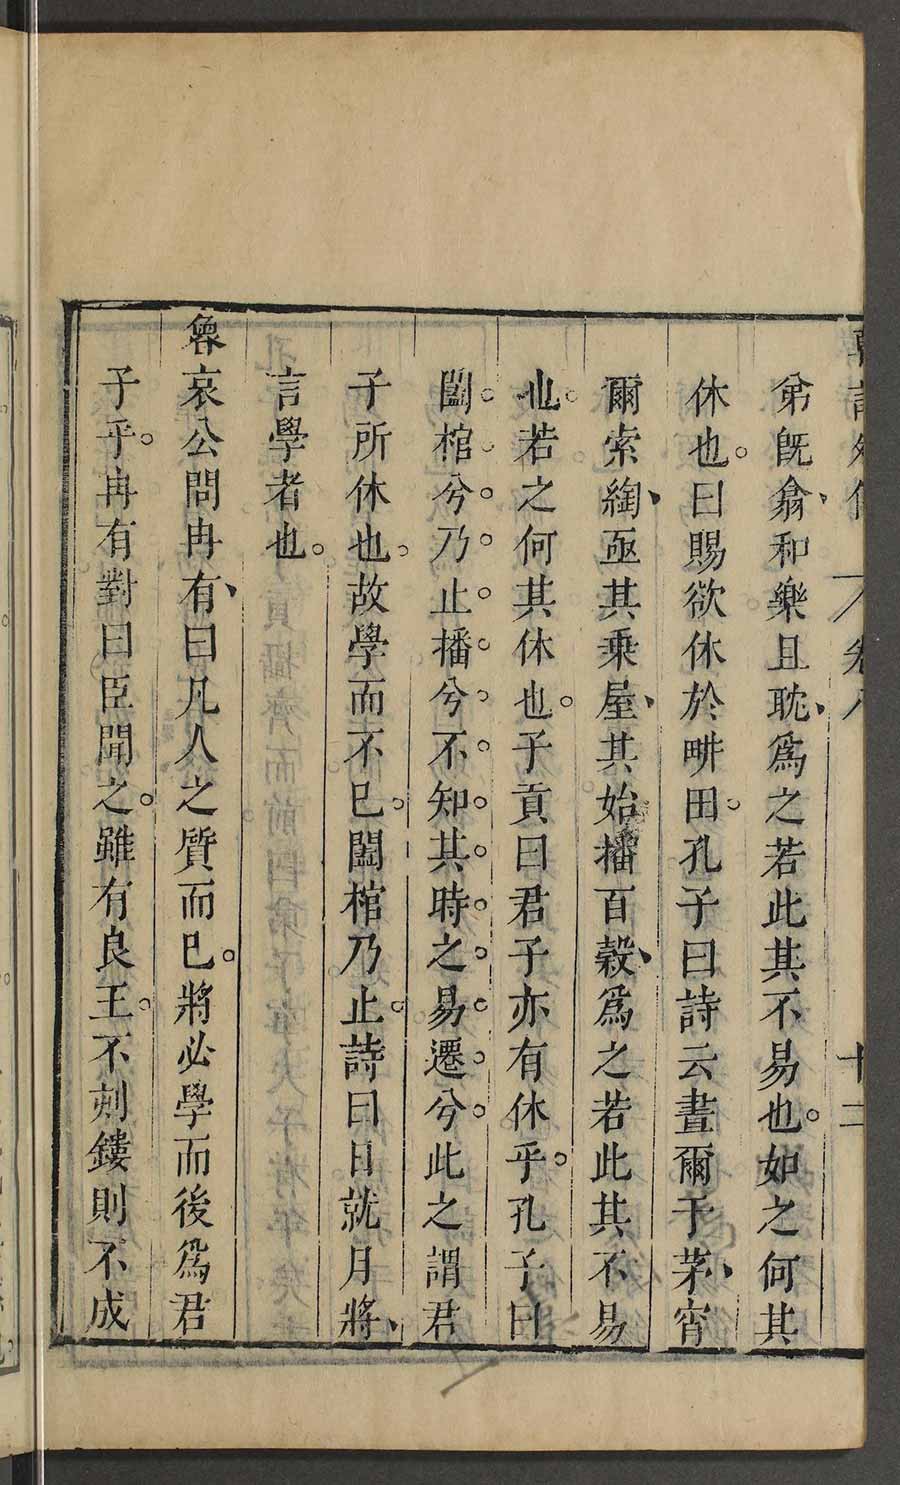 韓詩外傳 卷八 十二
弟旣翕、和樂且耽、爲之若此其不易也。如之何其
休也。曰賜欲休於畊田。孔子曰詩云晝爾于茅、宵
爾索綯、亟其乗屋、其始播百穀、爲之若此其不易
也。若之何其休也。子貢曰君子亦有休乎。孔子曰
闔。棺。兮。乃。止。播。兮。不。知。其。時。之。易。遷。兮。此之謂君
子所休也。故學而不已。闔棺乃止。詩曰日就月將、
言學者也。
魯哀公問冉有、曰凡人之質而已。將必學而後爲君
子乎。冉有對曰臣聞之。雖有良玉。不刻鏤則不成